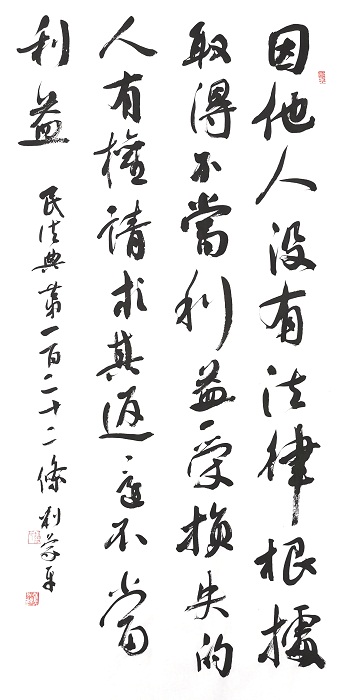 因他人没有法律根據
取得不當利益受损失的
人有權請求其返還不當
利益
民法典第一百二十二條